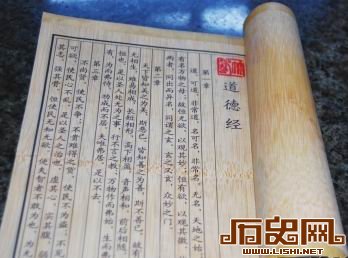 道德经
第一章
道,可道,非常道。名可名,非常名。无名,天地之始
有名万物之母。故恒无欲,以观其妙。恒有欲,以观其徼
两者,同出而异名,同谓之玄,玄之又玄,众妙之门。
第二章
天下皆知美之为美,斯恶已。皆知善之为善,斯不善已。故有
相生,难易相成,长短相形,高下相盈,音声相和,前后相随
恒也。是以圣人处无为之事,行不言之教,万物作而弗始,生而弗
有,为而弗恃,功成而弗居。夫唯弗居,是以不去。
第三章
不尚贤,使民不争。不贵难得之货,使民不为盗。不见
可欲,使民心不乱。是以圣人之治,虚其心,实其腹,
其志,强其骨。恒使民无知无欲。使夫智者不敢为也。为无
历史网
WWW.LISHI.NET